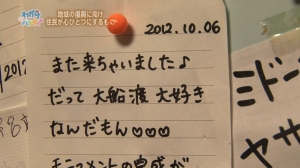 地域の復興に向け
住民が心ひとつにするもの
2012.10.06
また来ちゃいました♪
だって 大船渡 大好き
なんだもん♡♡♡
モニュメントの完成が
ミドー
ヤサ